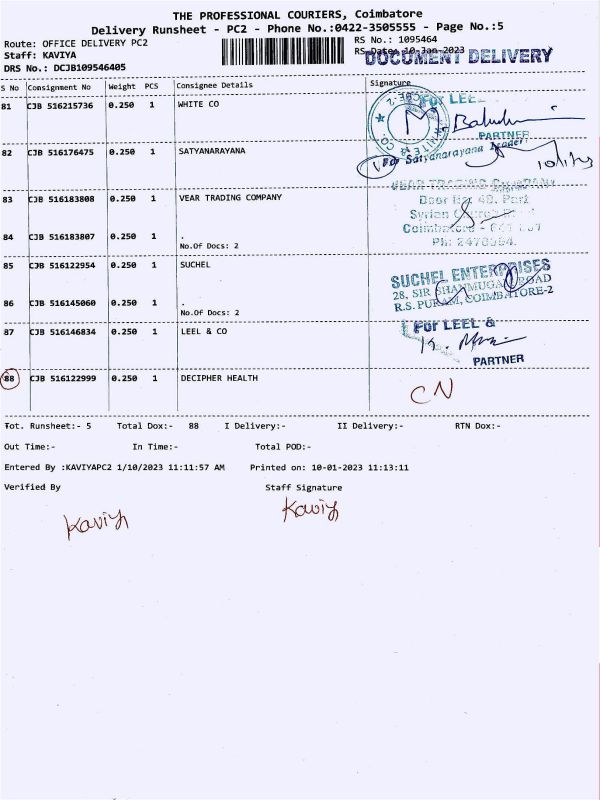 THE PROFESSIONAL COURIERS, Coimbatore
Delivery Runsheet - PC2 - Phone No.:0422-3505555 - Page No.:5
Route: OFFICE DELIVERY PC2
RS No.: 1095464
Staff: KAVIYA
RS Date: 10-Jan-2023
DOCUMENT DELIVERY
DRS No.: DCJB109546405
S No Consignment No Weight PCS Consignee Details Signature
81 CJB 516215736 0.250 1 WHITE CO
For LEEL
PARTNER
82 CJB 516176475 0.250 1 SATYANARAYANA
For Satyanarayana
83 CJB 516183808 0.250 1 VEAR TRADING COMPANY
VEAR TRADING COMPANY
Syrian Church Road
84 CJB 516183807 0.250 1 .
No.Of Docs: 2
85 CJB 516122954 0.250 1 SUCHEL
SUCHEL ENTERPRISES
28, SIR SHANMUGAM ROAD
R.S. PURAM, COIMBATORE-2
86 CJB 516145060 0.250 1 .
No.Of Docs: 2
87 CJB 516146834 0.250 1 LEEL & CO
For LEEL &
PARTNER
88 CJB 516122999 0.250 1 DECIPHER HEALTH
CN
Tot. Runsheet:- 5 Total Dox:- 88 I Delivery:- II Delivery:- RTN Dox:-
Out Time:- In Time:- Total POD:-
Entered By :KAVIYAPC2 1/10/2023 11:11:57 AM Printed on: 10-01-2023 11:13:11
Verified By Staff Signature
Kaviya Kaviya